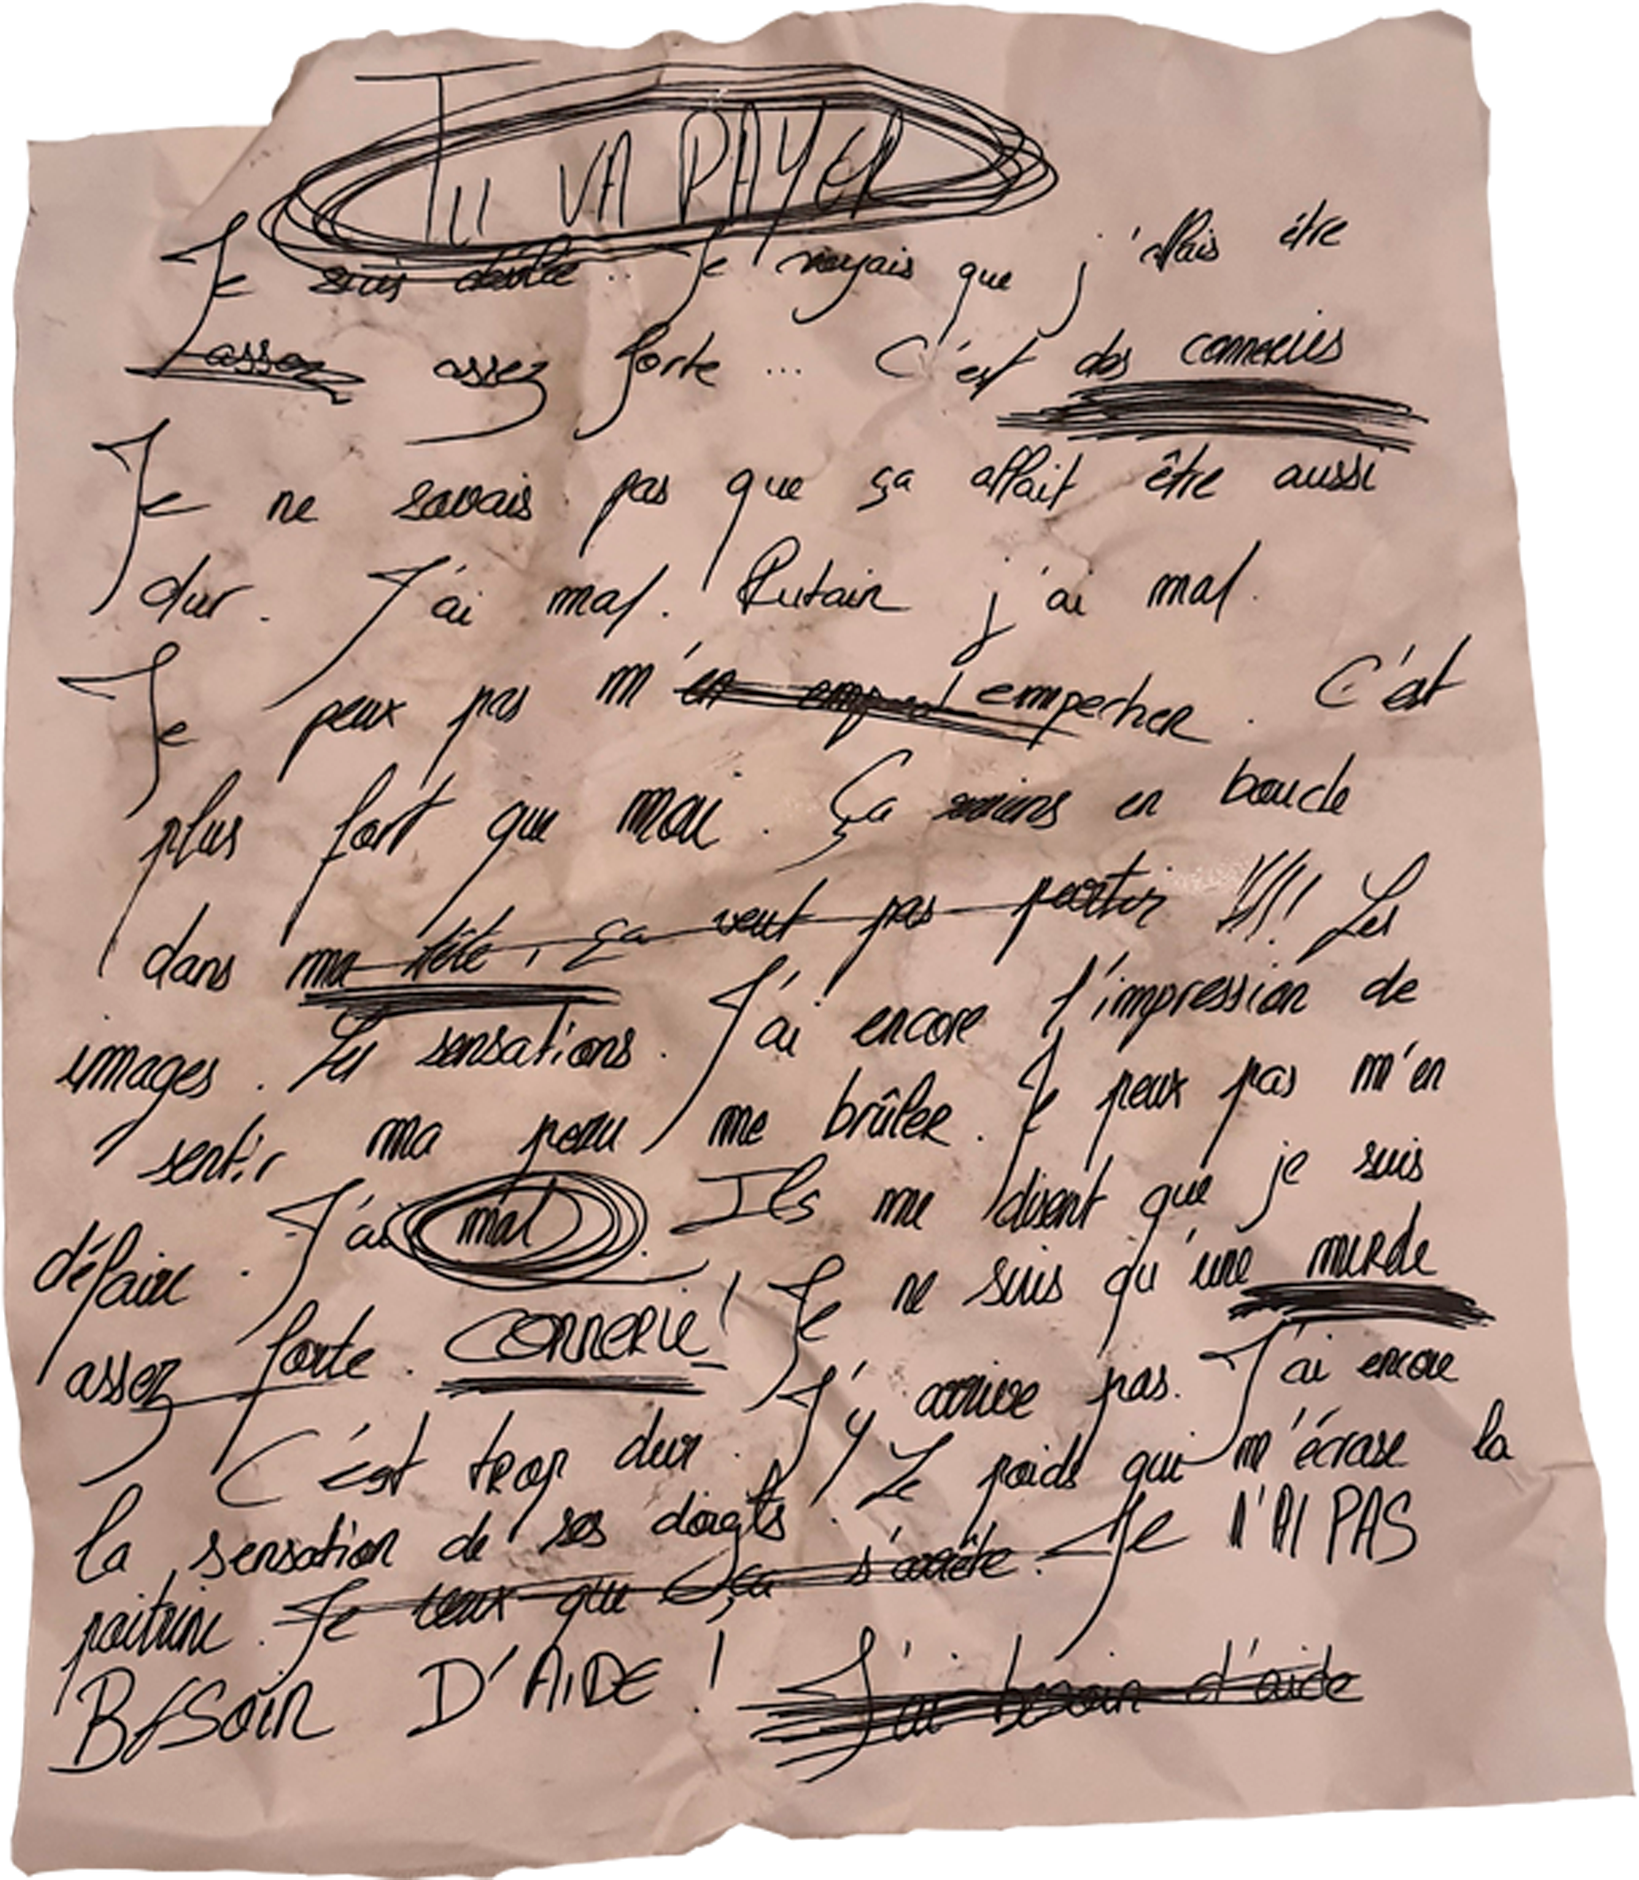 TU VA PAYER
Je suis Je voyais que j'allais être
assez assez forte ... C'est des conneries
Je ne savais pas que ça allait être aussi
dur. J'ai mal. Putain j'ai mal.
Je peux pas m'en empecher. C'est
plus fort que moi. Ça reviens en boucle
dans ma tête, ça veut pas partir !!!! Les
images. Les sensations. J'ai encore l'impression de
sentir ma peau me brûler. Je peux pas m'en
défaire. J'ai mal. Ils me disent que je suis
assez forte. CONNERIE! Je ne suis qu'une merde
C'est trop dur. J'y arrive pas. J'ai encore
la sensation de ses doigts. Le poids qui m'écrase la
poitrine. Je veux que ça s'arrête. Je N'AI PAS
BESOIN D'AIDE ! J'ai besoin d'aide